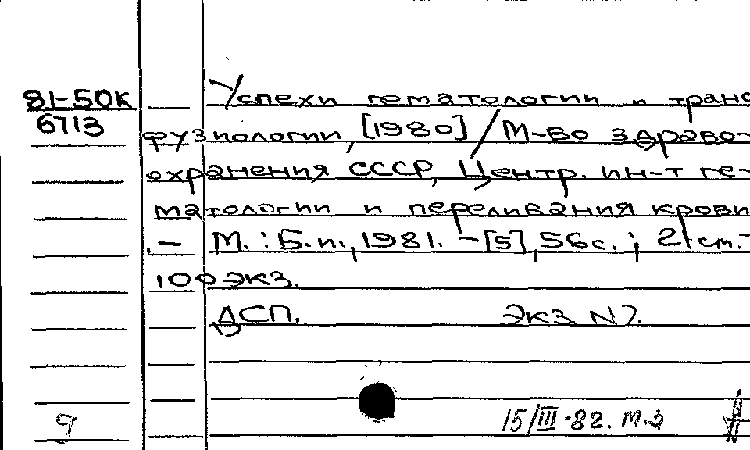 81-50К Успехи гематологии и транс
6713 фузиологии, [1980] / М-во здраво-
охранения СССР, Центр. ин-т ге-
матологии и переливания крови
.- М. : Б.и., 1981. - [5], 56 с. ; 21 см. -
100 экз.
ДСП. Экз N 7.
9 15/III-82. м.з